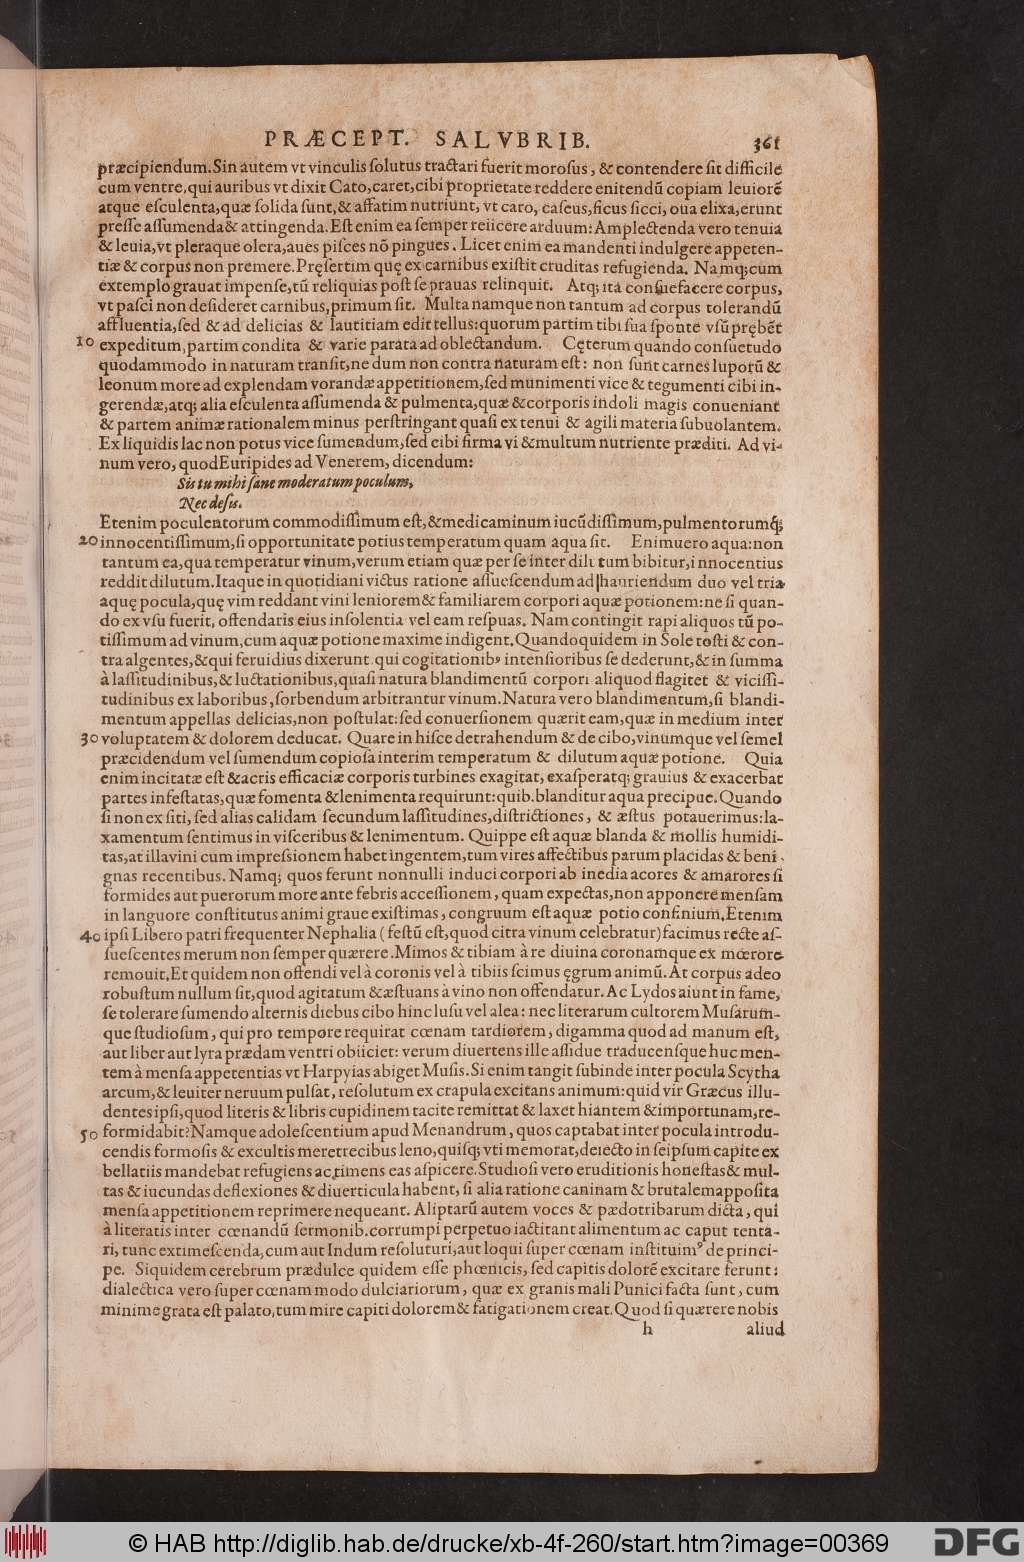 PRÆCEPT. SALVBRIB. 361
præcipiendum. Sin autem vt vinculis solutus tractari fuerit morosus, & contendere sit difficile
cum ventre, qui auribus vt dixit Cato, caret, cibi proprietate reddere enitendū copiam leuiorē
atque esculenta, quæ solida sunt, & affatim nutriunt, vt caro, caseus, ficus sicci, oua elixa, erunt
presse assumenda & attingenda. Est enim ea semper reiicere arduum: Amplectenda vero tenuia
& leuia, vt pleraque olera, aues pisces nō pingues. Licet enim ea mandenti indulgere appeten-
tiæ & corpus non premere. Pręsertim quę ex carnibus existit cruditas refugienda. Namq; cum
extemplo grauat impense, tū reliquias post se prauas relinquit. Atq; ita consuefacere corpus,
vt pasci non desideret carnibus, primum sit. Multa namque non tantum ad corpus tolerandū
affluentia, sed & ad delicias & lautitiam edit tellus: quorum partim tibi sua sponte vsū prębēt
10 expeditum, partim condita & varie parata ad oblectandum. Cęterum quando consuetudo
quodammodo in naturam transit, ne dum non contra naturam est: non sunt carnes luporū &
leonum more ad explendam vorandæ appetitionem, sed munimenti vice & tegumenti cibi in-
gerendæ, atq; alia esculenta assumenda & pulmenta, quæ & corporis indoli magis conueniant
& partem animæ rationalem minus perstringant quasi ex tenui & agili materia subuolantem.
Ex liquidis lac non potus vice sumendum, sed cibi firma vi & multum nutriente præditi. Ad vi-
num vero, quod Euripides ad Venerem, dicendum:
Sis tu mihi sane moderatum poculum,
Nec desis.
Etenim poculentorum commodissimum est, & medicaminum iucūdissimum, pulmentorumq́;
20 innocentissimum, si opportunitate potius temperatum quam aqua sit. Enimuero aqua: non
tantum ea, qua temperatur vinum, verum etiam quæ per se inter dilutum bibitur, innocentius
reddit dilutum. Itaque in quotidiani victus ratione assuescendum ad hauriendum duo vel tria
aquę pocula, quę vim reddant vini leniorem & familiarem corpori aquæ potionem: ne si quan-
do ex vsu fuerit, offendaris eius insolentia vel eam respuas. Nam contingit rapi aliquos tū po-
tissimum ad vinum, cum aquæ potione maxime indigent. Quandoquidem in Sole tosti & con-
tra algentes, & qui feruidius dixerunt qui cogitationib⁹ intensioribus se dederunt, & in summa
à lassitudinibus, & luctationibus, quasi natura blandimentū corpori aliquod flagitet & vicissi-
tudinibus ex laboribus, sorbendum arbitrantur vinum. Natura vero blandimentum, si blandi-
mentum appellas delicias, non postulat: sed conuersionem quærit eam, quæ in medium inter
30 voluptatem & dolorem deducat. Quare in hisce detrahendum & de cibo, vinumque vel semel
præcidendum vel sumendum copiosa interim temperatum & dilutum aquæ potione. Quia
enim incitatæ est & acris efficaciæ corporis turbines exagitat, exasperatq; grauius & exacerbat
partes infestatas, quæ fomenta & lenimenta requirunt: quib. blanditur aqua precipue. Quando
si non ex siti, sed alias calidam secundum lassitudines, districtiones, & æstus potauerimus: la-
xamentum sentimus in visceribus & lenimentum. Quippe est aquæ blanda & mollis humidi-
tas, at illa vini cum impressionem habet ingentem, tum vires affectibus parum placidas & beni
gnas recentibus. Namq; quos ferunt nonnulli induci corpori ab inedia acores & amarores si
formides aut puerorum more ante febris accessionem, quam expectas, non apponere mensam
in languore constitutus animi graue existimas, congruum est aquæ potio confinium. Etenim
40 ipsi Libero patri frequenter Nephalia (festū est, quod citra vinum celebratur) facimus recte as-
suescentes merum non semper quærere. Mimos & tibiam à re diuina coronamque ex mœrore
remouit. Et quidem non offendi vel à coronis vel à tibiis scimus ęgrum animū. At corpus adeo
robustum nullum sit, quod agitatum & æstuans à vino non offendatur. Ac Lydos aiunt in fame,
se tolerare sumendo alternis diebus cibo hinc lusu vel alea: nec literarum cultorem Musarum-
que studiosum, qui pro tempore requirat cœnam tardiorem, digamma quod ad manum est,
aut liber aut lyra prædam ventri obiiciet: verum diuertens ille assidue traducensque huc men-
tem à mensa appetentias vt Harpyias abiget Musis. Si enim tangit subinde inter pocula Scytha
arcum, & leuiter neruum pulsat, resolutum ex crapula excitans animum: quid vir Græcus illu-
dentes ipsi, quod literis & libris cupidinem tacite remittat & laxet hiantem & importunam, re-
50 formidabit? Namque adolescentium apud Menandrum, quos captabat inter pocula introdu-
cendis formosis & excultis meretrecibus leno, quisq; vti memorat, deiecto in seipsum capite ex
bellatiis mandebat refugiens ac timens eas aspicere. Studiosi vero eruditionis honestas & mul-
tas & iucundas deflexiones & diuerticula habent, si alia ratione caninam & brutalem apposita
mensa appetitionem reprimere nequeant. Aliptarū autem voces & pædotribarum dicta, qui
à literatis inter cœnandū sermonib. corrumpi perpetuo iactitant alimentum ac caput tenta-
ri, tunc extimescenda, cum aut Indum resoluturi, aut loqui super cœnam instituim⁹ de princi-
pe. Siquidem cerebrum prædulce quidem esse phœnicis, sed capitis dolorē excitare ferunt:
dialectica vero super cœnam modo dulciariorum, quæ ex granis mali Punici facta sunt, cum
minime grata est palato, tum mire capiti dolorem & fatigationem creat. Quod si quærere nobis
h aliud
© HAB http://diglib.hab.de/drucke/xb-4f-260/start.htm?image=00369 DFG